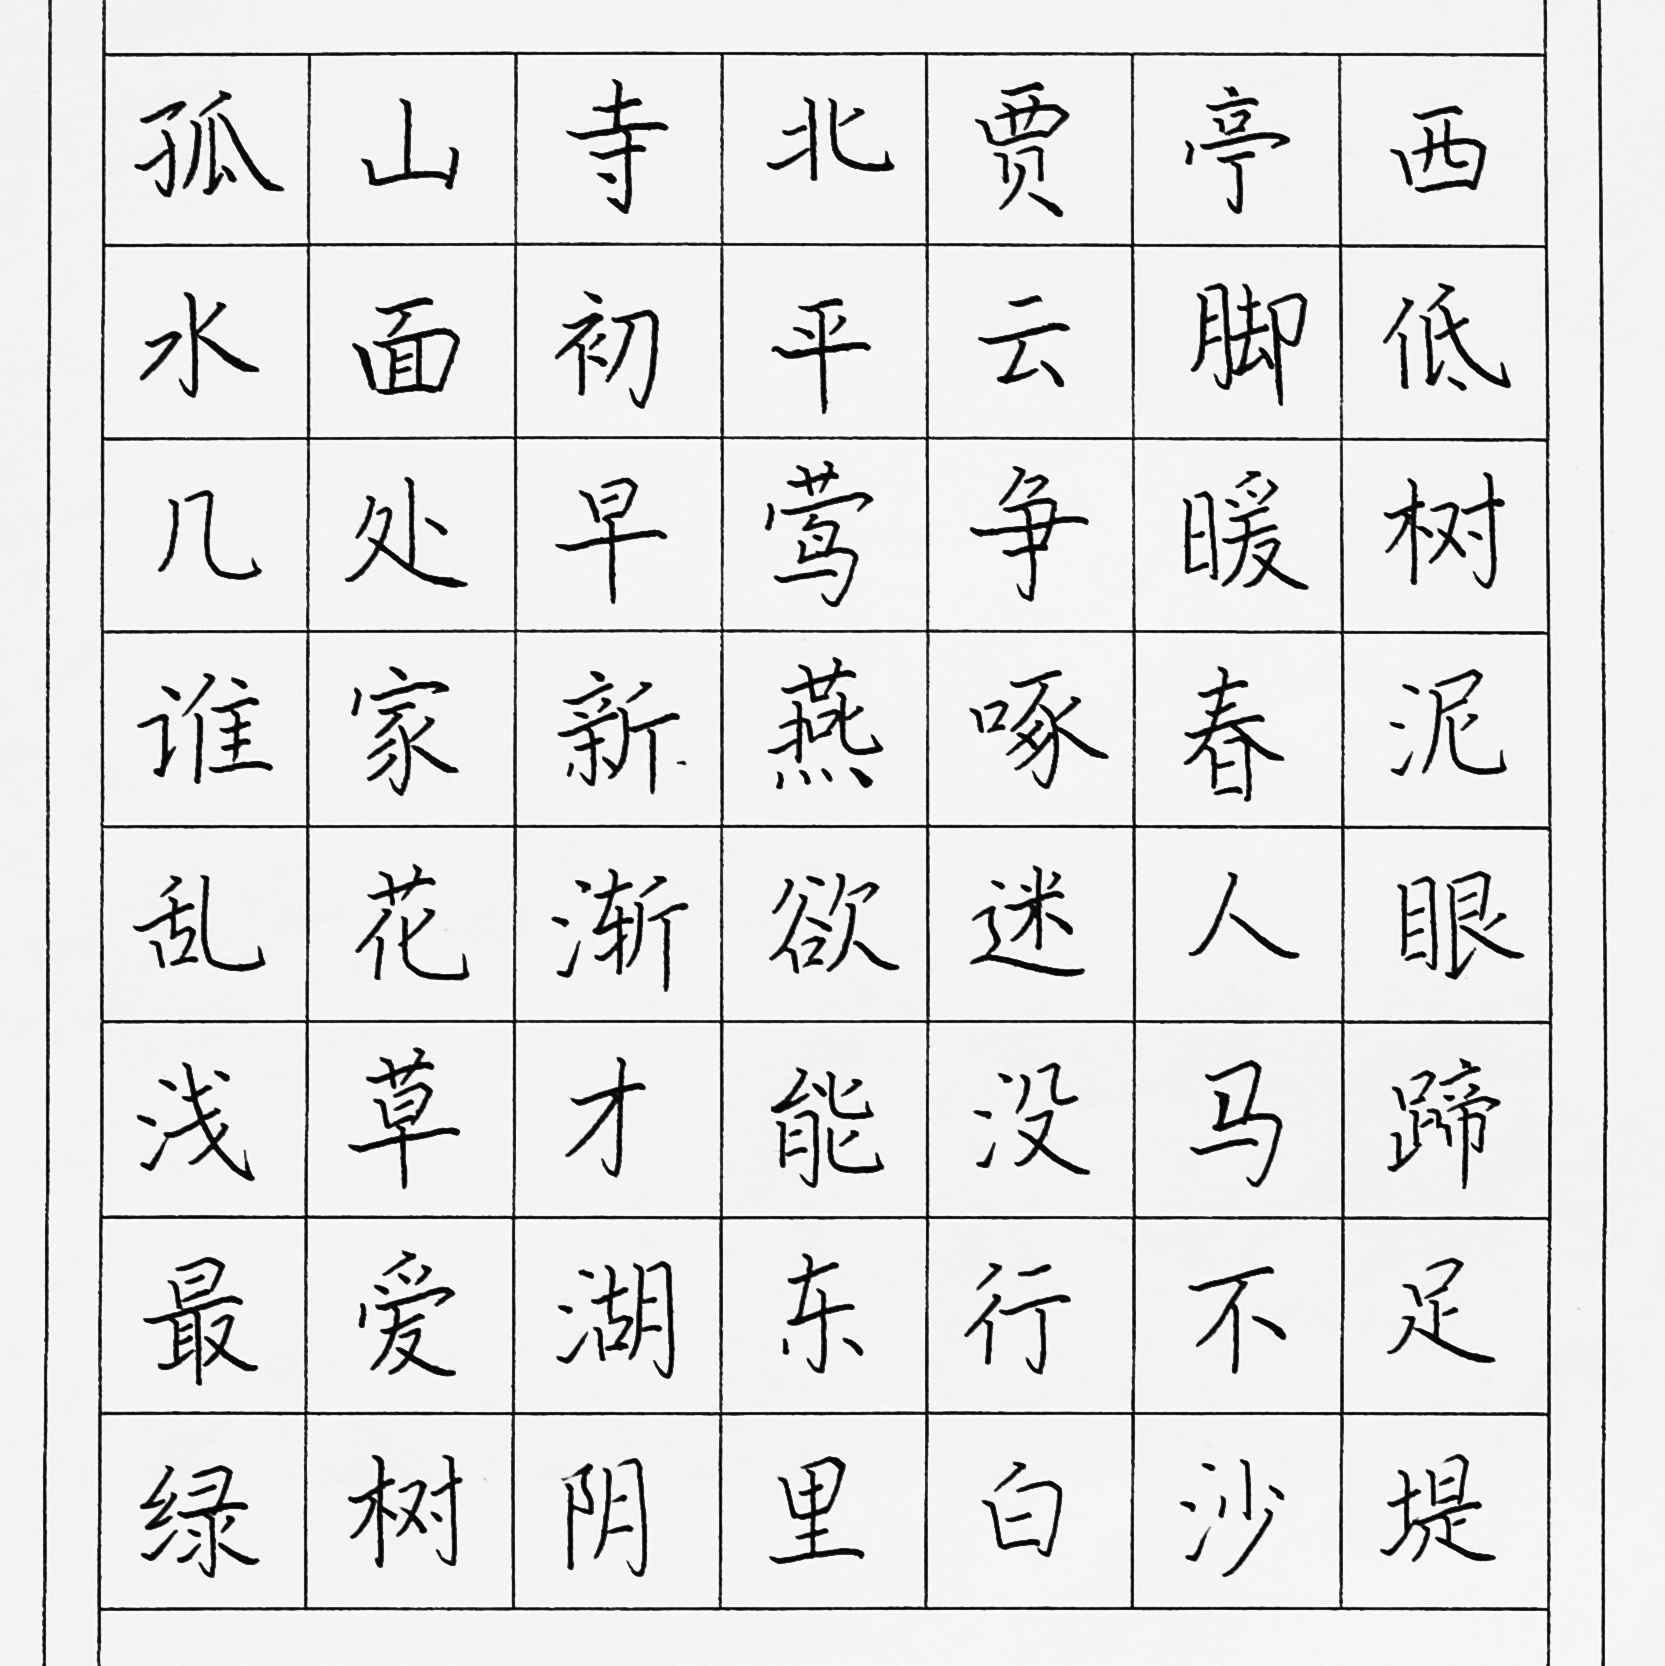 孤山寺北贾亭西
水面初平云脚低
几处早莺争暖树
谁家新燕啄春泥
乱花渐欲迷人眼
浅草才能没马蹄
最爱湖东行不足
绿树阴里白沙堤